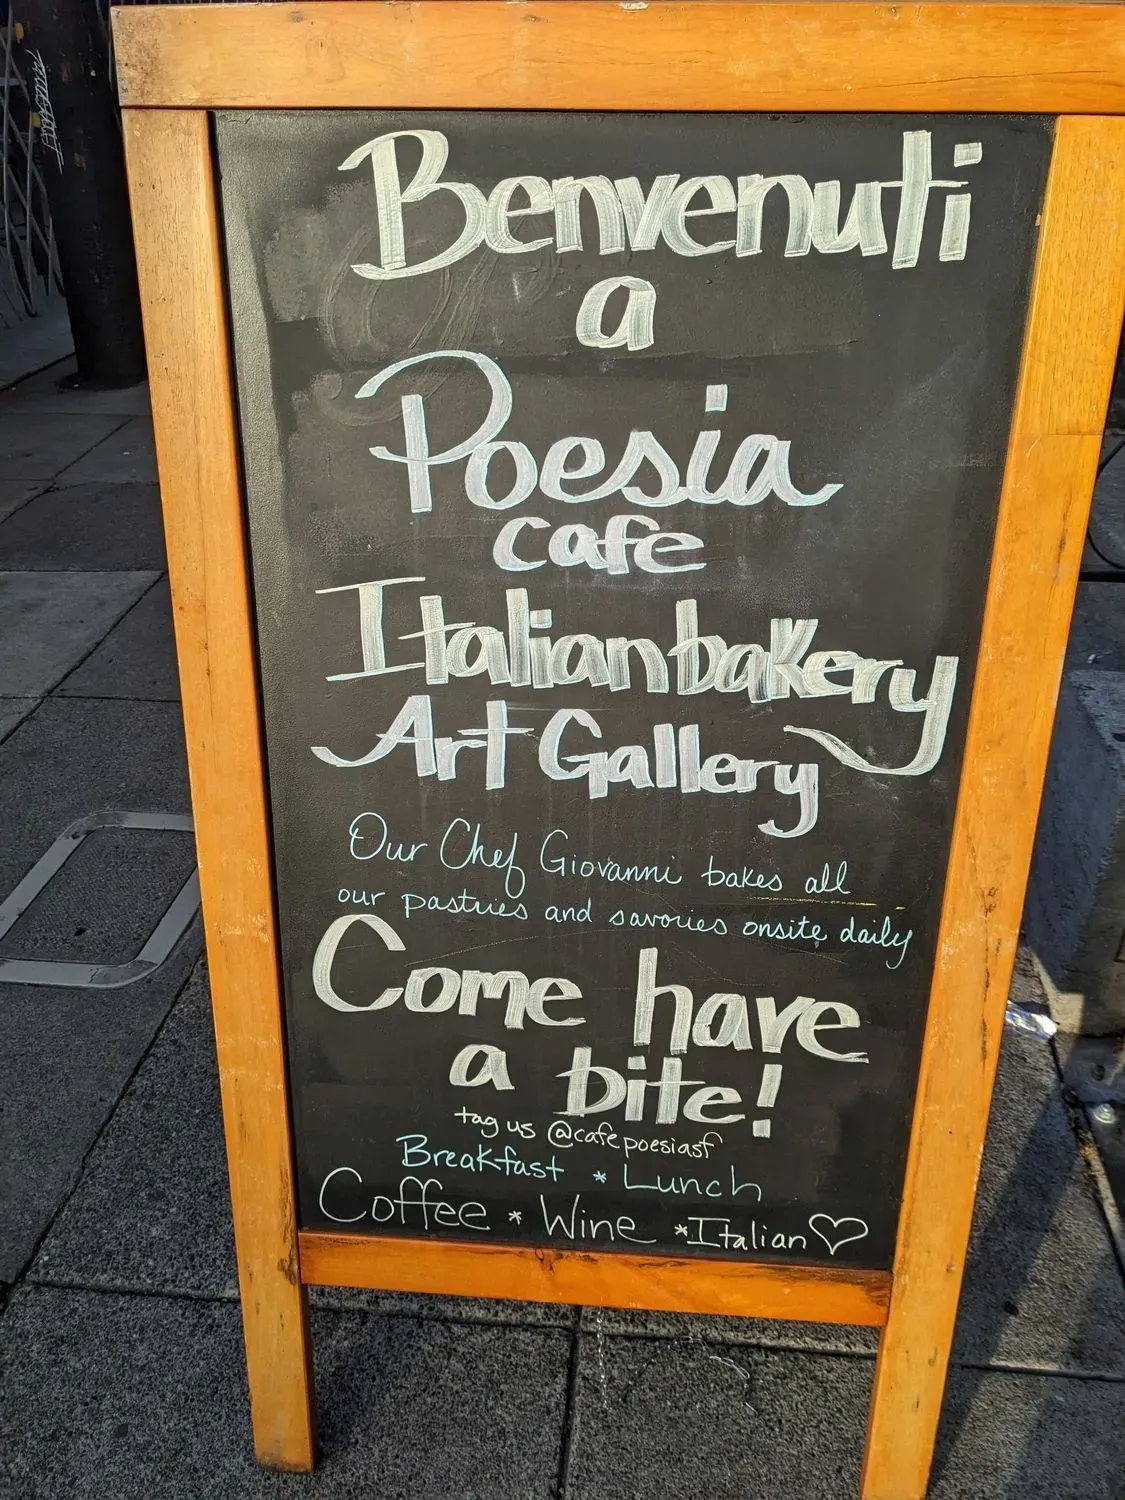 Benvenuti
a
Poesia
cafe
Italian bakery
Art Gallery
Our Chef Giovanni bakes all
our pastries and savories onsite daily
Come have
a bite!
tag us @cafepoesiasf
Breakfast * Lunch
Coffee * Wine * Italian ♡